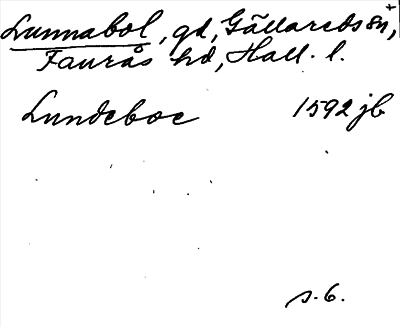 Lunnabol, gd, Gällareds sn,
Faurås hd, Hall. l.
Lundeboe 1592 jb
s. 6.